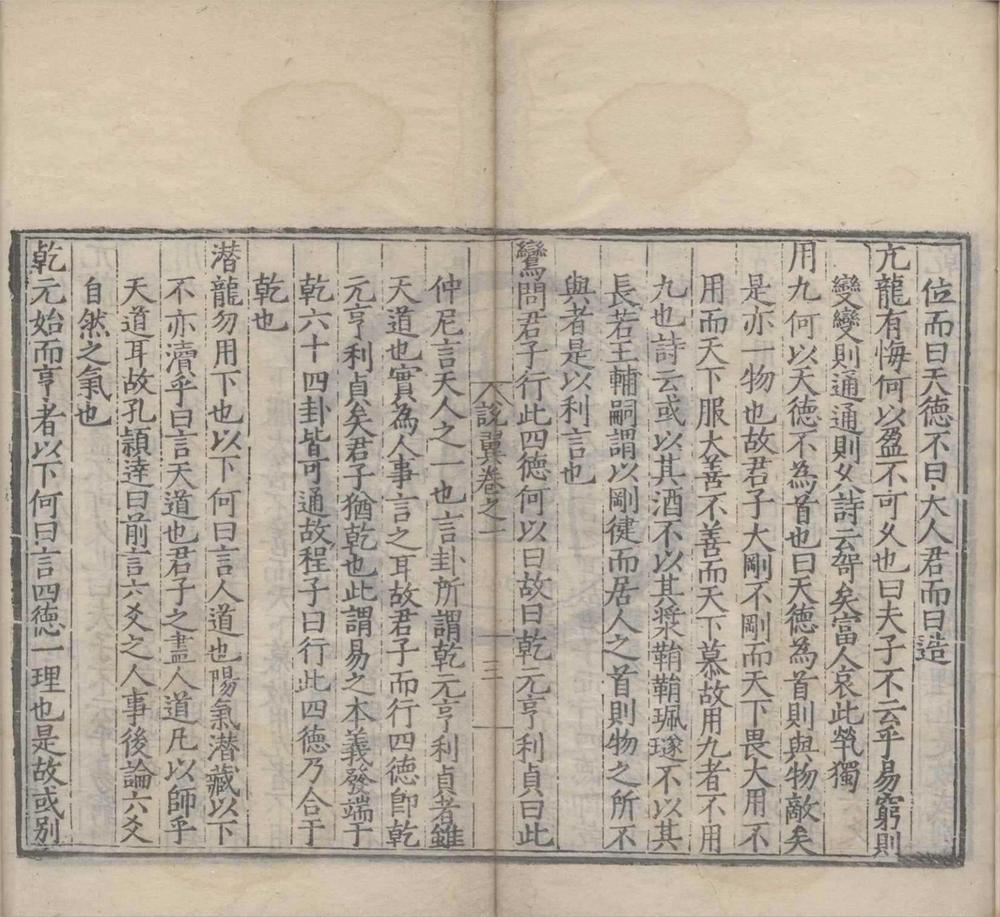 位而曰天德不曰大人君而曰造
亢龍有悔何以盈不可久也曰夫子不云乎易窮則
變變則通通則久詩云哿矣富人哀此煢獨
用九何以天德不為首也曰天德為首則與物敵矣
是亦一物也故君子大剛不剛而天下畏大用不
用而天下服大善不善而天下慕故用九者不用
九也詩云或以其酒不以其漿鞙鞙珮璲不以其
長若王輔嗣謂以剛健而居人之首則物之所不
與者是以利言也
鸞問君子行此四德何以曰故曰乾元亨利貞曰此
說翼卷之一
三
仲尼言天人之一也言卦所謂乾元亨利貞者雖
天道也實為人事言之耳故君子而行四德即乾
元亨利貞矣君子猶乾也此謂易之本義發端于
乾六十四卦皆可通故程子曰行此四德乃合于
乾也
潛龍勿用下也以下何曰言人道也陽氣潛藏以下
不亦瀆乎曰言天道也君子之盡人道凡以師乎
天道耳故孔穎達曰前言六爻之人事後論六爻
自然之氣也
乾元始而亨者以下何曰言四德一理也是故或別